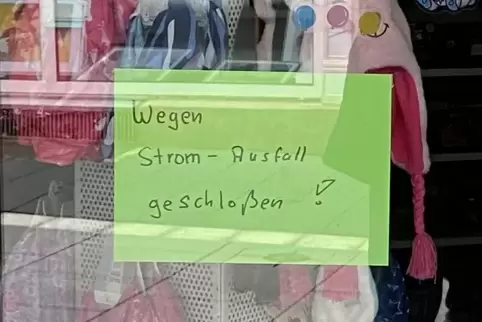 Wegen
Strom - Ausfall
geschloßen !